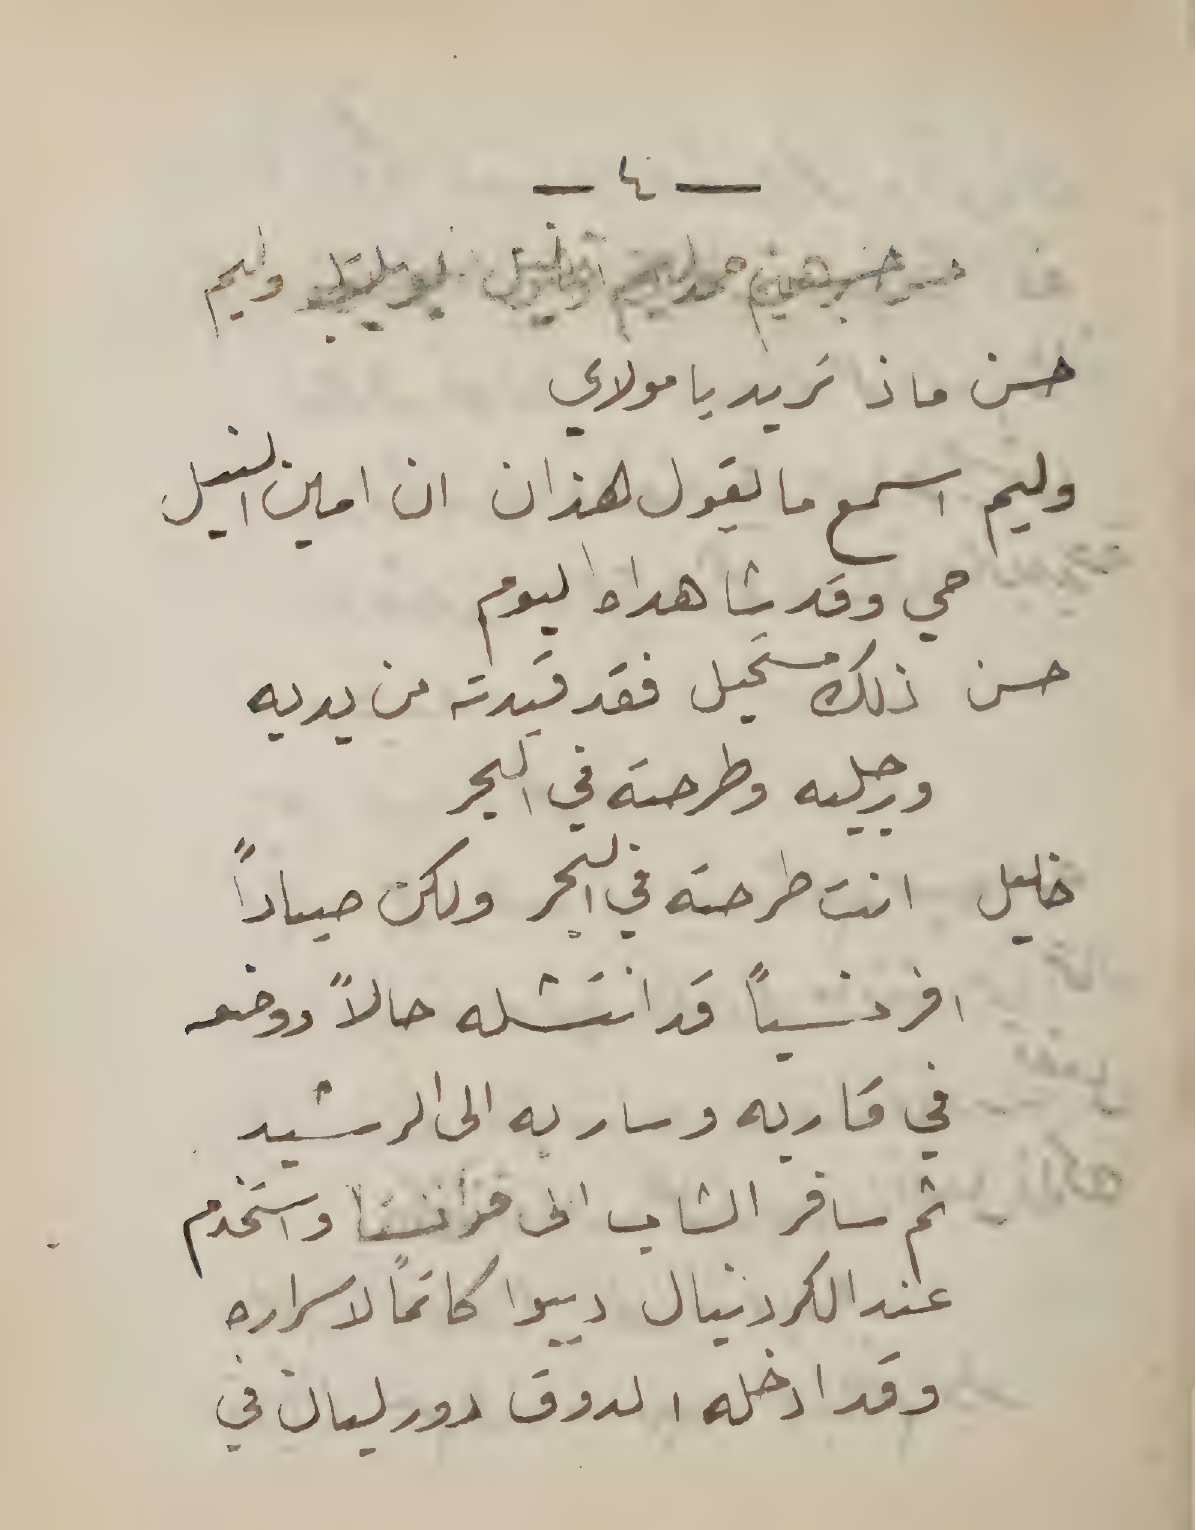 — ٤ —
وليم
حسن ماذا تريد يا مولاي
وليم اسمع ما يقول هذان ان امين النيل
حي وقد شاهداه اليوم
حسن ذلك مستحيل فقد قيدته من يديه
ورجليه وطرحته في البحر
خليل انت طرحته في البحر ولكن صياداً
افرنسياً قد انتشله حالاً ووضعه
في قاربه وسار به الى الرشيد
ثم سافر الشاب الى فرانسا واستخدم
عند الكردينال ديبوا كاتماً لاسراره
وقد ادخله الدوق دورليان في